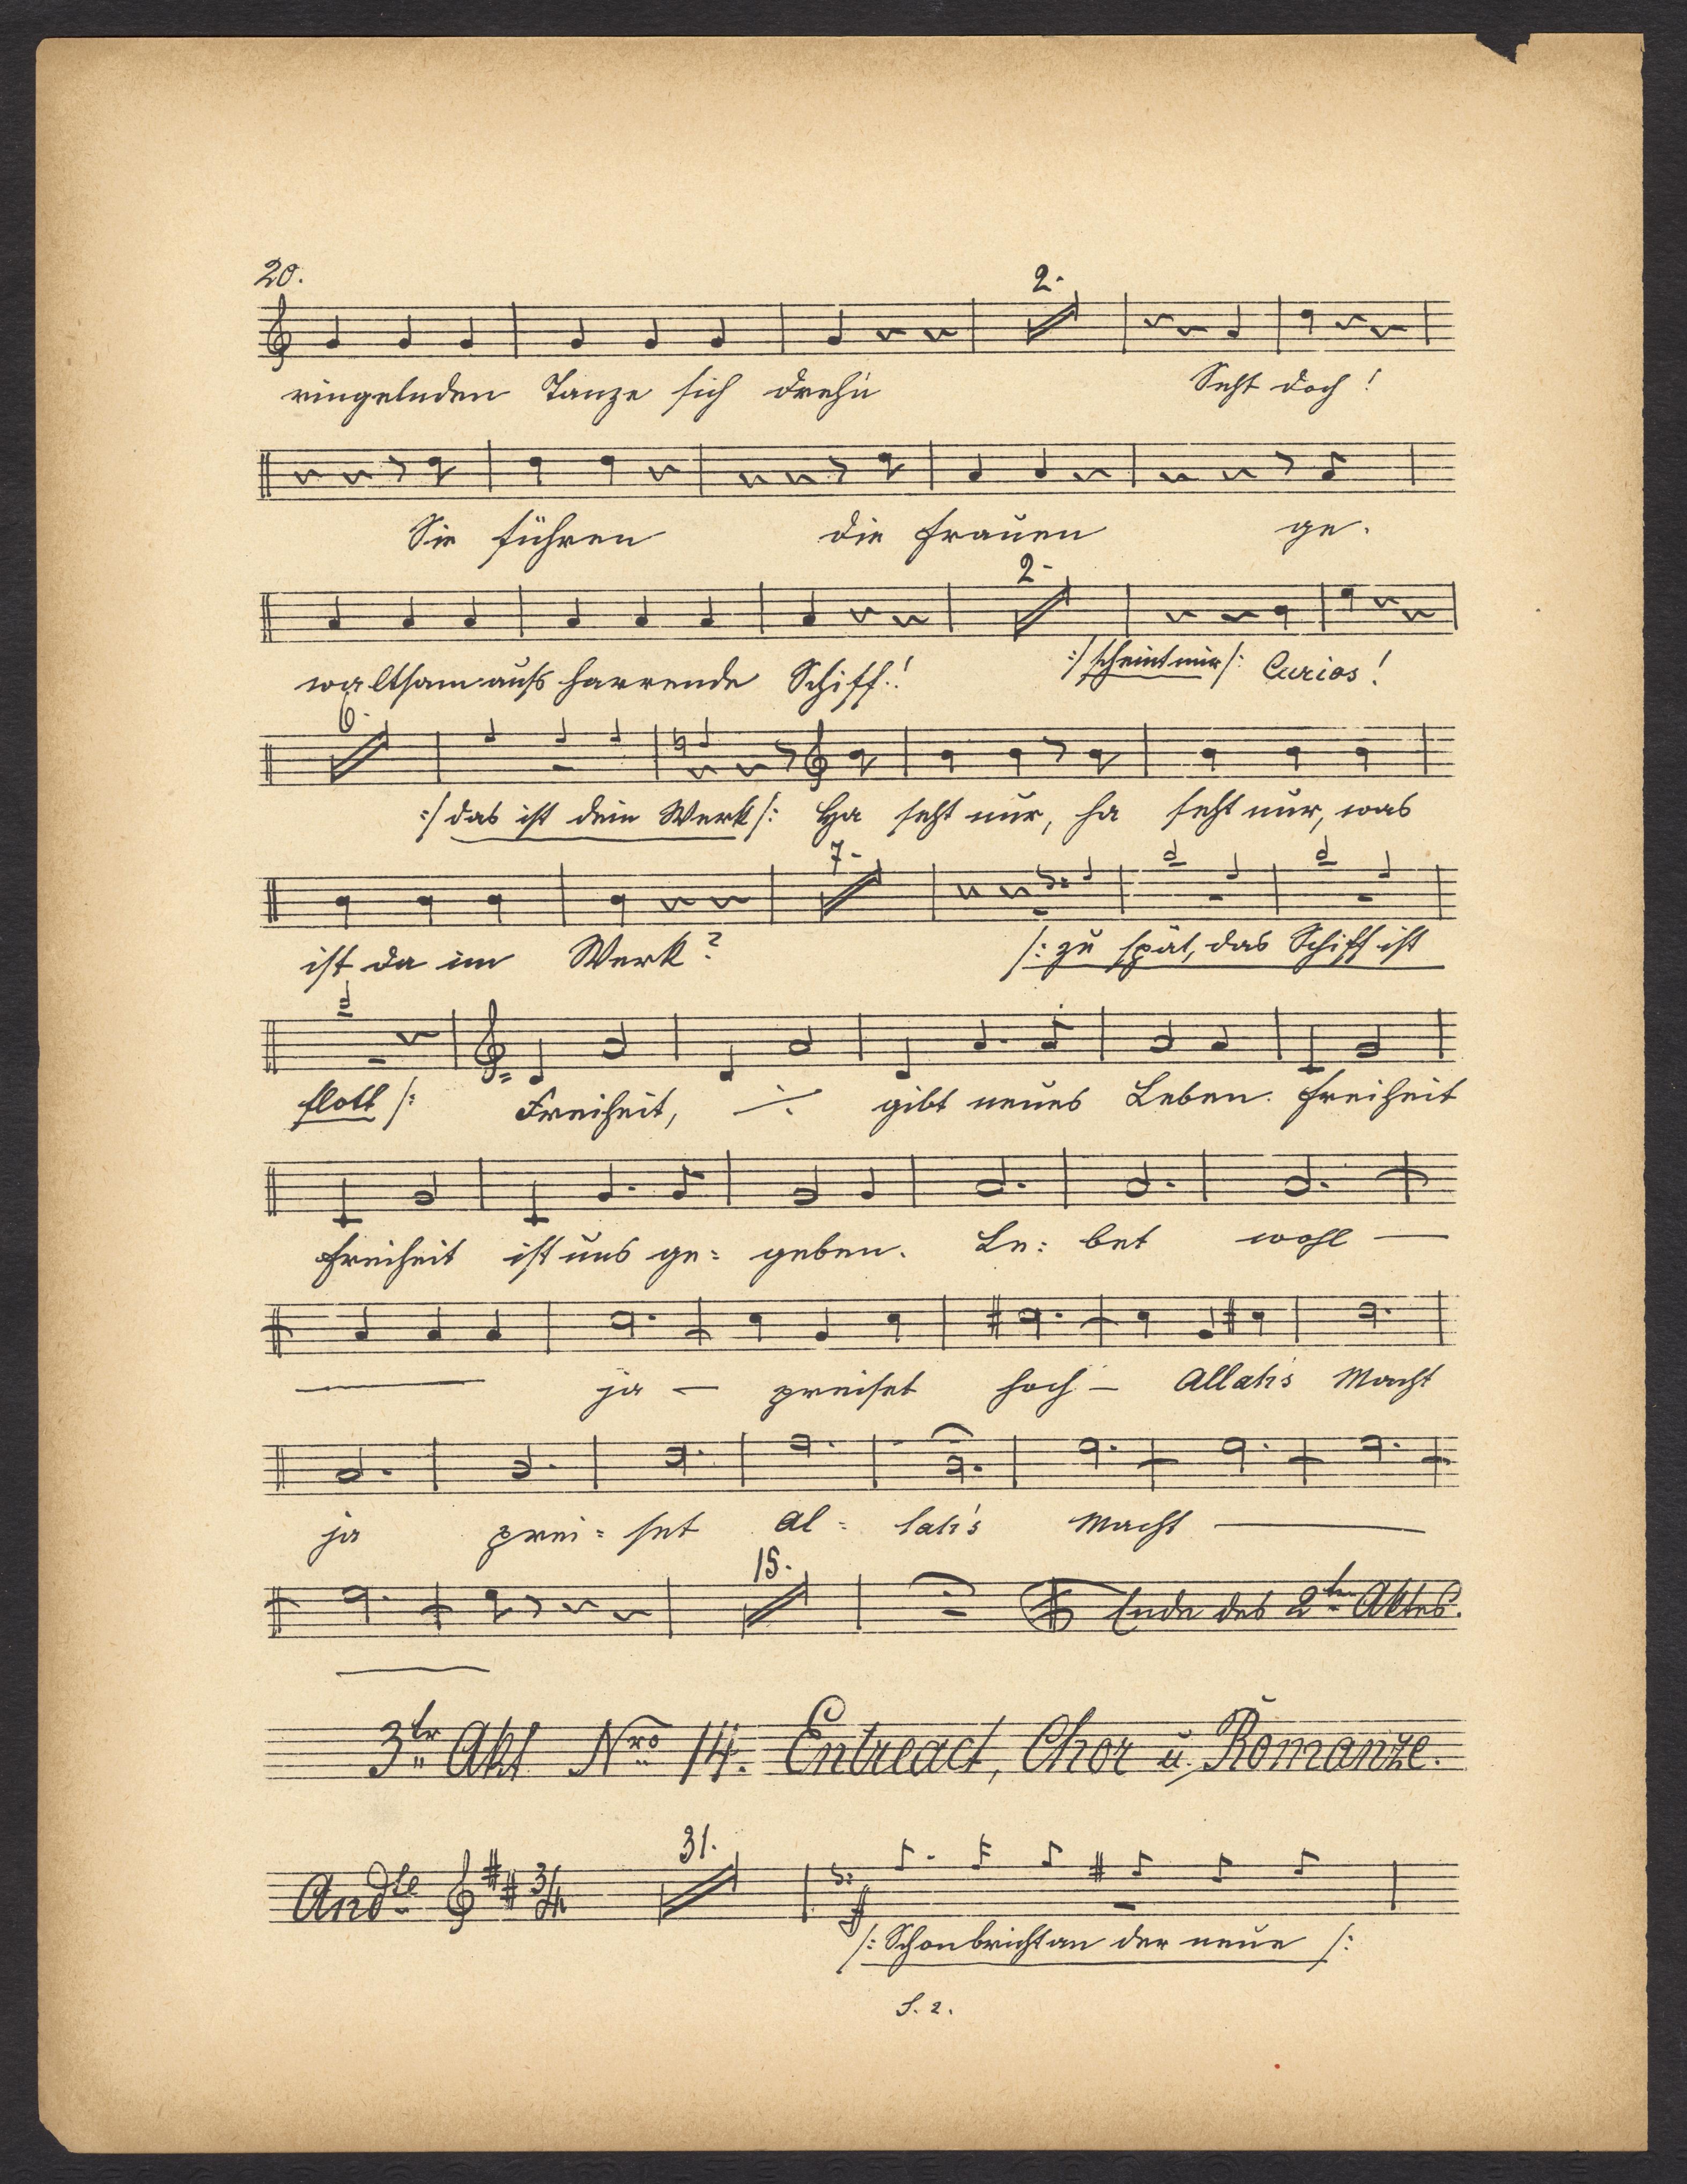 20.
2.
ringelnden Tanze sich dreh'n Seht doch!
Sie führen die Frauen ge.
2.
waltsam aufs harrende Schiff! :/ scheint mir /: Curios!
6.
:/ das ist dein Werk /: Ha seht nur, ha seht nur, was
7.
ist da im Werk? /: zu spät, das Schiff ist
flott /: Freiheit, ·/· gibt neues Leben. Freiheit
Freiheit ist uns ge= geben. Le= bet wohl —
— ja — preiset hoch — Allah's Macht
ja prei= set Al= lah's Macht —
15.
Ende des 2ten Aktes.
3ter Akt Nro 14. Entreact, Chor u. Romanze.
31.
Andte 3/4
/: Schon bricht an der neue /:
S. 2.